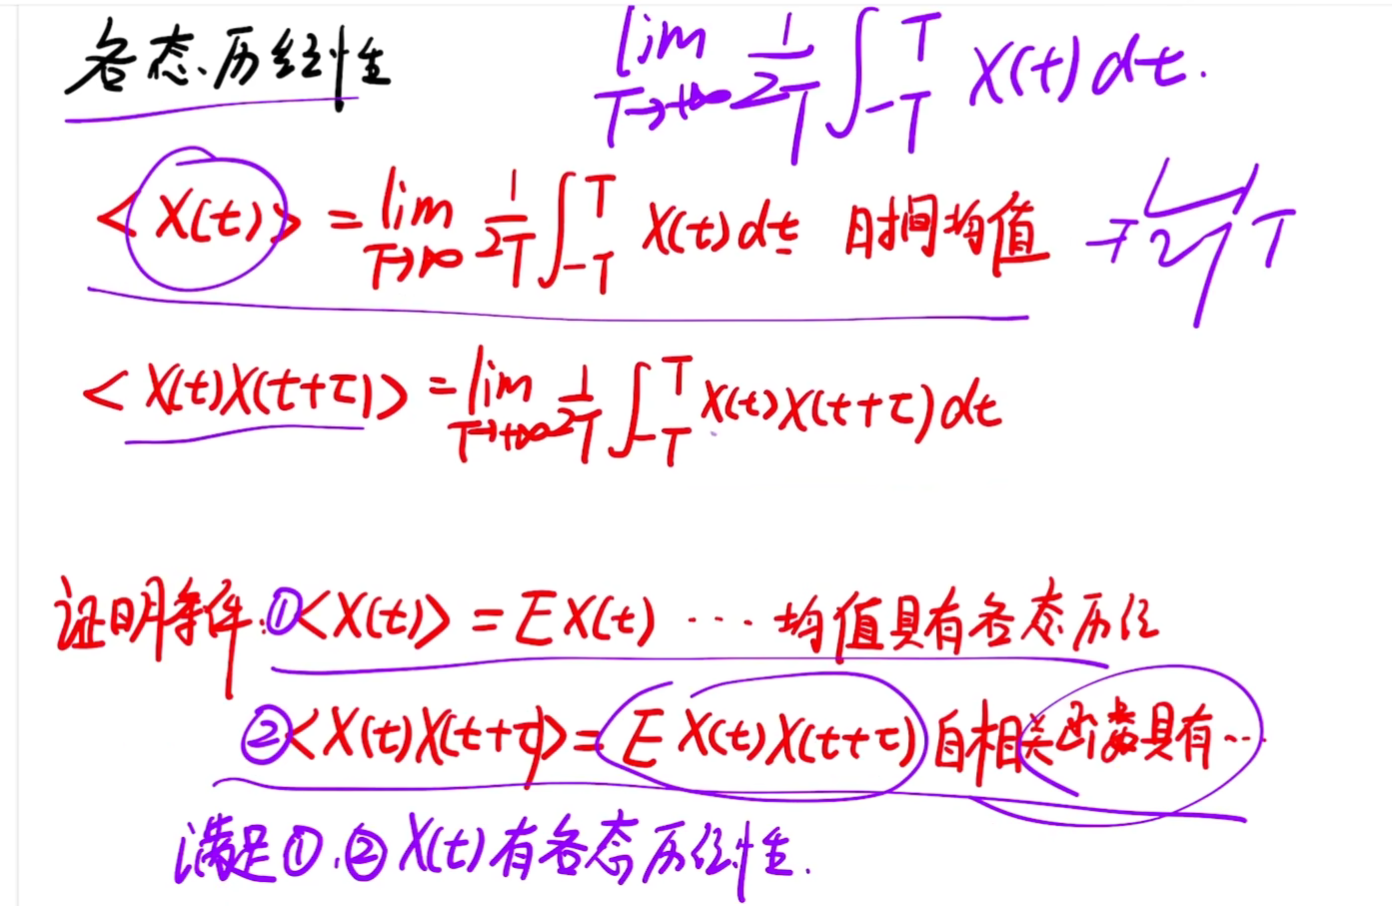 各态历经性
lim T→+∞ 1/2T ∫_{-T}^{T} X(t)dt.
<X(t)> = lim T→∞ 1/2T ∫_{-T}^{T} X(t)dt 时间均值
-T T
<X(t)X(t+τ)> = lim T→+∞ 1/2T ∫_{-T}^{T} X(t)X(t+τ)dt
证明条件:①<X(t)> = EX(t) ··· 均值具有各态历经
②<X(t)X(t+τ)> = E X(t)X(t+τ) 自相关函数具有···
满足①.② X(t)有各态历经性.